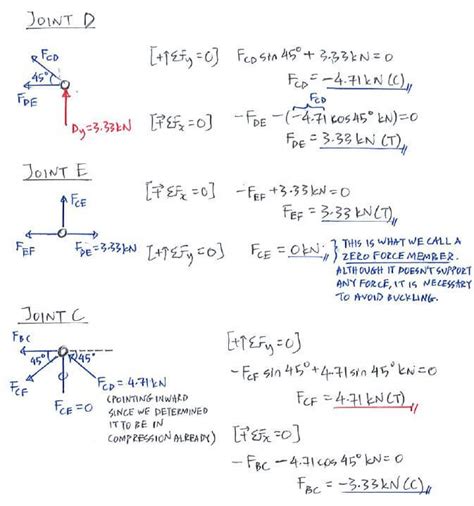 JOINT D
F_CD
45°
F_DE
Dy=3.33kN
[+↑ΣFy=0] F_CD sin 45° + 3.33kN = 0
F_CD = -4.71 kN (C)
F_CD
[→+ ΣFx=0] -F_DE - (-4.71 cos45° kN) = 0
F_DE = 3.33 kN (T)
JOINT E
F_CE
F_EF
F_DE=3.33kN
[→+ ΣFx=0] -F_EF + 3.33 kN = 0
F_EF = 3.33 kN (T)
[+↑ΣFy=0] F_CE = 0kN
THIS IS WHAT WE CALL A
ZERO FORCE MEMBER.
ALTHOUGH IT DOESN'T SUPPORT
ANY FORCE, IT IS NECESSARY
TO AVOID BUCKLING.
JOINT C
F_BC
45°
45°
F_CF
F_CE=0
F_CD = 4.71kN
(POINTING INWARD
SINCE WE DETERMINED
IT TO BE IN
COMPRESSION ALREADY)
[+↑ΣFy=0]
-F_CF sin 45° + 4.71 sin 45° kN = 0
F_CF = 4.71 kN (T)
[→+ ΣFx=0]
-F_BC - 4.71 cos 45° kN = 0
F_BC = -3.33 kN (C)